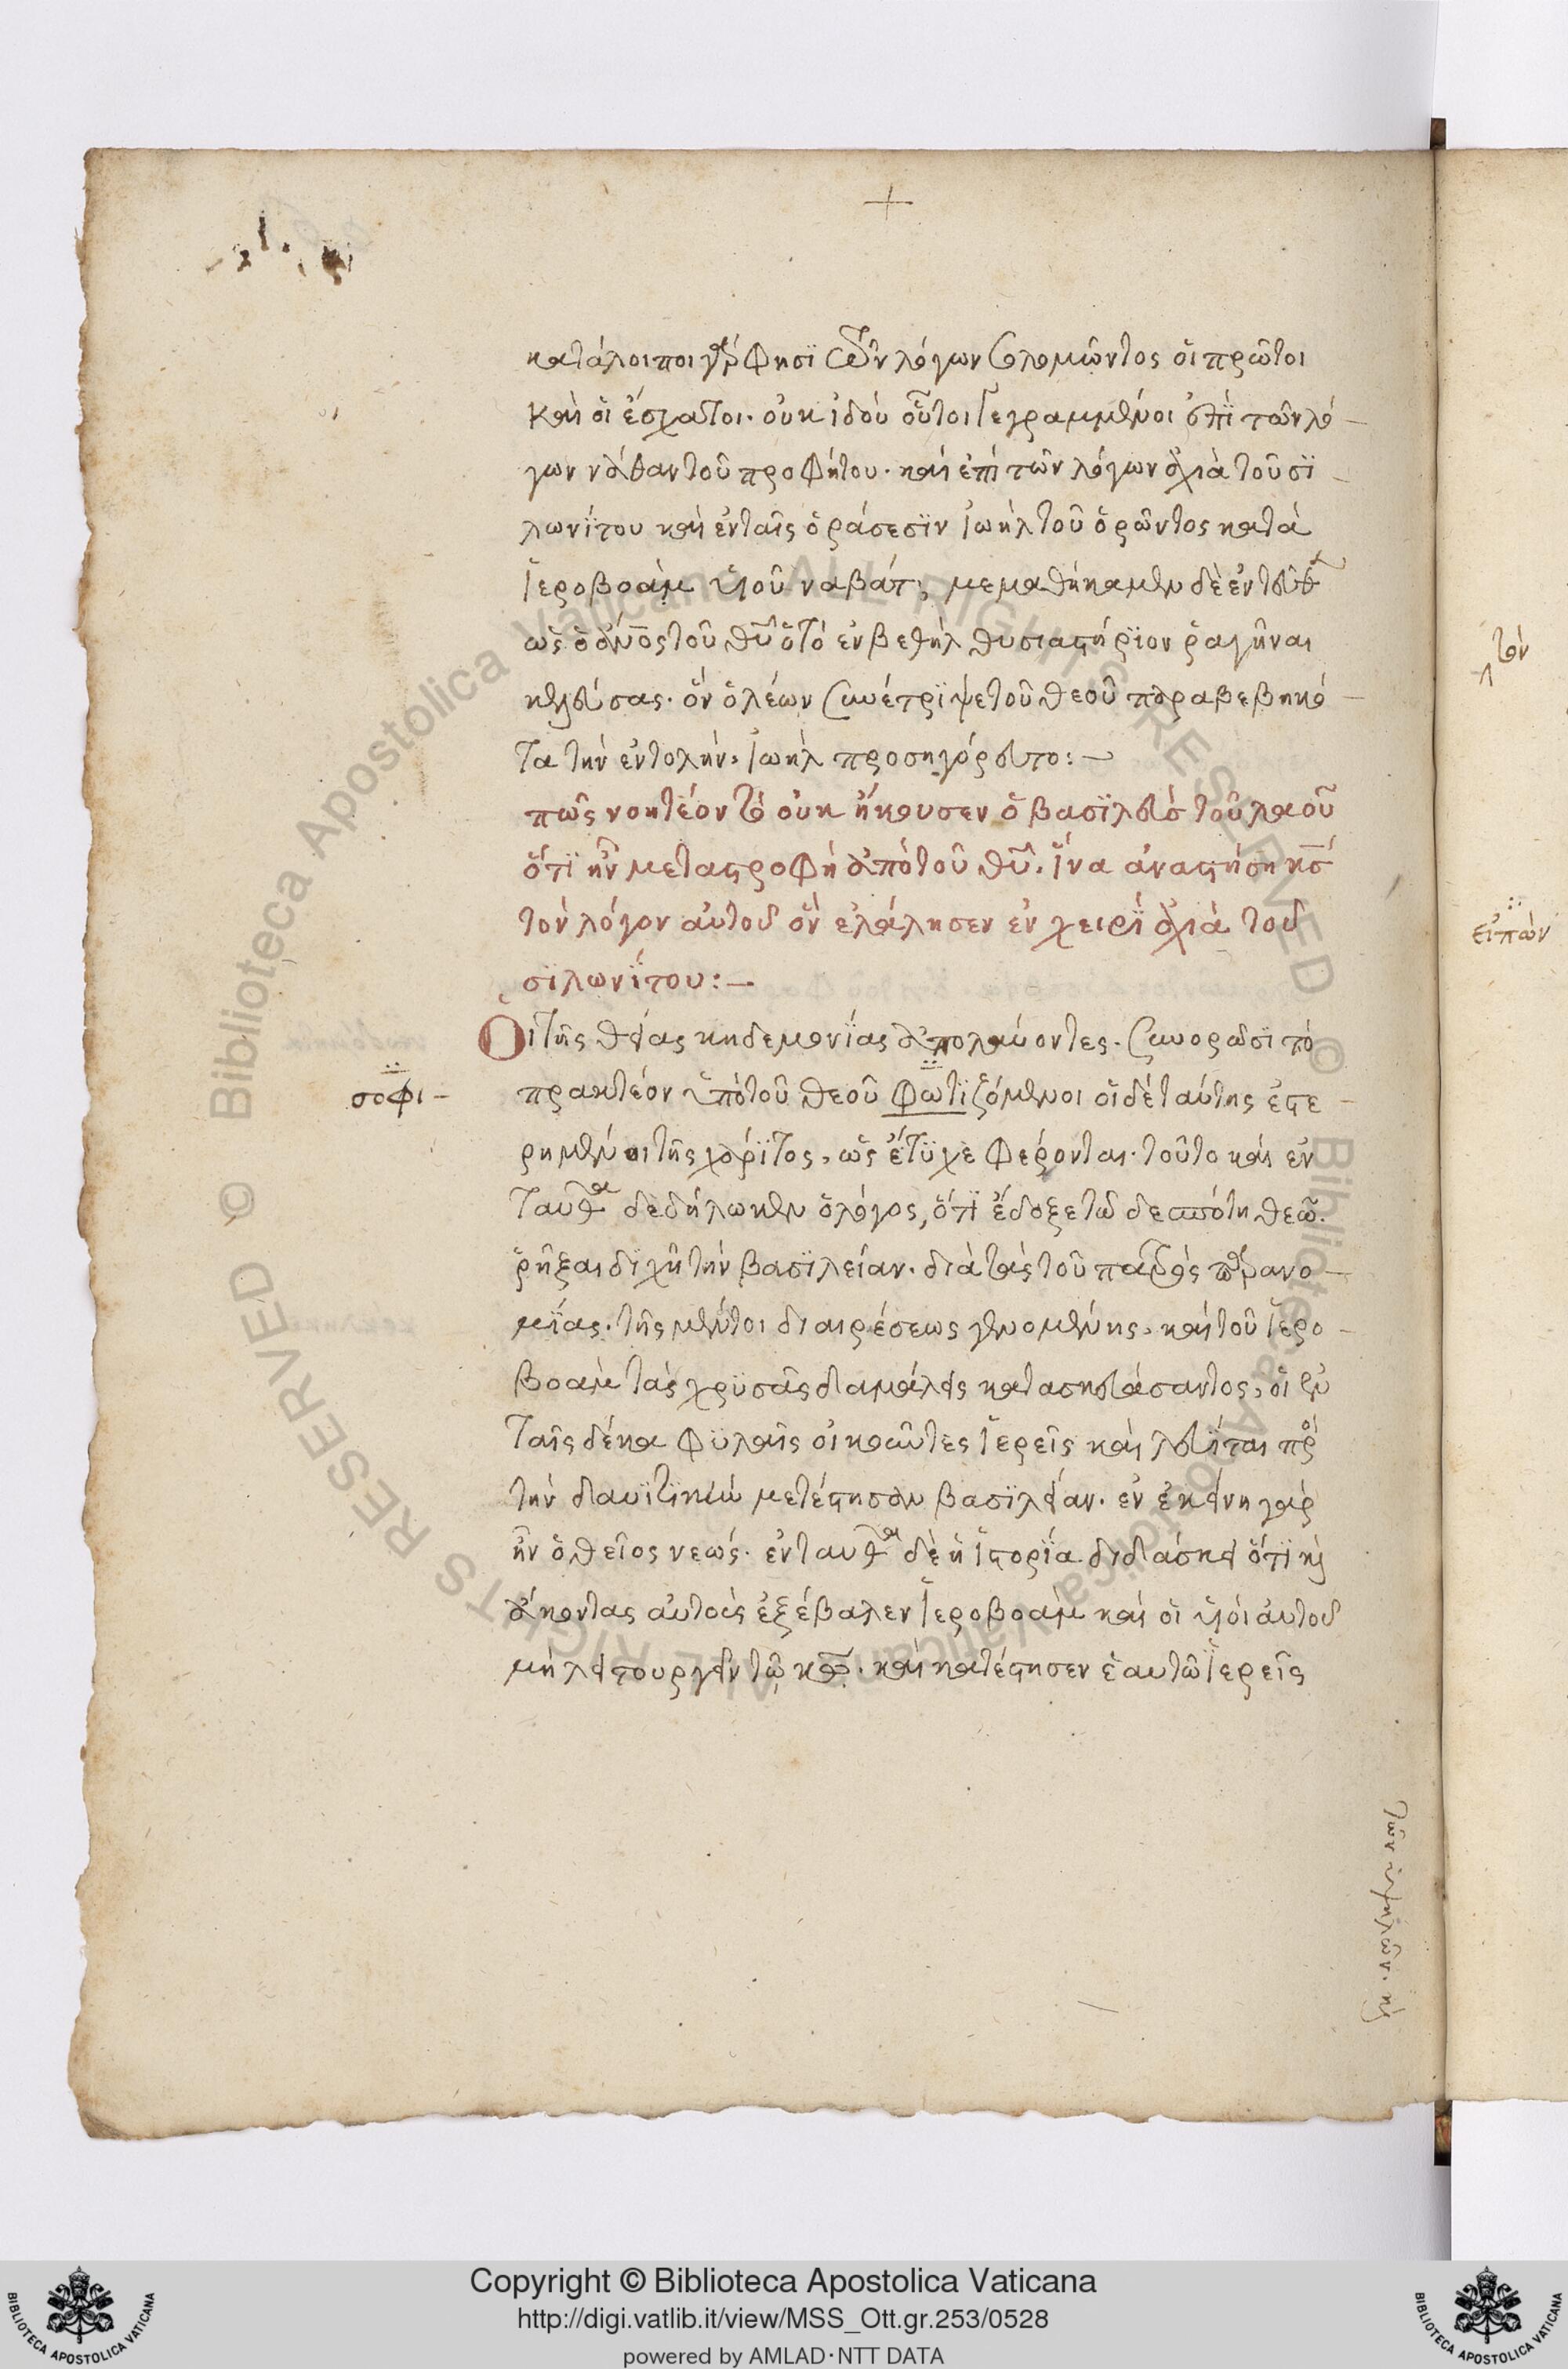 +
κατάλοιποι γάρ φησι τῶν λόγων σολομῶντος οἱ πρῶτοι
καὶ οἱ ἔσχατοι. οὐκ ἰδοὺ οὗτοι γεγραμμένοι ἐπὶ τῶν λό-
γων νάθαν τοῦ προφήτου. καὶ ἐπὶ τῶν λόγων ἀχιὰ τοῦ σϊ-
λωνίτου καὶ ἐν ταῖς ὁράσεσϊν ἰωὴλ τοῦ ὁρῶντος κατὰ
ἱεροβοὰμ υἱοῦ ναβάτ, μεμαθήκαμεν δὲ ἐντεῦθ
ὡς ὁ ἄνος τοῦ θῦ ὁ τὸ ἐν βεθὴλ θυσιαστήριον ῥαγῆναι
κελεύσας. ὃν ὁ λέων συνέτριψε τοῦ θεοῦ παραβεβηκό-
τα τὴν ἐντολήν, ἰωὴλ προσηγόρευτο:—
πῶς νοητέον τὸ οὐκ ἤκουσεν ὁ βασϊλεὺς τοῦ λαοῦ
ὅτϊ ἦν μεταστροφὴ ἀπὸ τοῦ θῦ. ἵνα ἀναστήση κς
τὸν λόγον αὐτοῦ ὃν ἐλάλησεν ἐν χειρὶ ἀχιὰ τοῦ
σϊλωνίτου:—
Οἱ τῆς θείας κηδεμονίας ἀπολαύοντες. συνορῶσι τὸ
σοφι-
πρακτέον ὑπὸ τοῦ θεοῦ φωτϊζόμενοι οἱ δὲ ταύτης ἐστε-
ρημένοι τῆς χάριτος, ὡς ἔτϋχε φέρονται. τοῦτο καὶ ἐν
ταῦθα δεδήλωκεν ὁ λόγος, ὅτϊ ἔδοξε τῶ δεσπότη θεῶ.
ῥῆξαι διχῆ τὴν βασϊλείαν. διὰ τὰς τοῦ παιδὸς παρανο-
μίας. τῆς μέντοι διαιρέσεως γενομένης, καὶ τοῦ ἱερο-
βοὰμ τὰς χρϋσᾶς δαμάλεις κατασκευάσαντος, οἱ ἐν
ταῖς δέκα φϋλαῖς οἰκοῦντες ἱερεῖς καὶ λευΐται πρὸ
τὴν δαυϊτϊκὴν μετέστησαν βασϊλείαν. ἐν ἐκείνη γὰρ
ἦν ὁ θεῖος νεώς. ἐνταῦθα δὲ ἡ ἱστορία διδάσκει ὅτϊ καὶ
ἄκοντας αὐτοὺς ἐξέβαλεν ἱεροβοὰμ καὶ οἱ υἱοὶ αὐτοῦ
μὴ λειτουργεῖν τῶ κω. καὶ κατέστησεν ἑαυτῶ ἱερεῖς
τῶν ὑψηλῶν. καὶ
τὸν
εἰπὼν
Copyright © Biblioteca Apostolica Vaticana
http://digi.vatlib.it/view/MSS_Ott.gr.253/0528
powered by AMLAD·NTT DATA
BIBLIOTECA APOSTOLICA VATICANA
BIBLIOTECA APOSTOLICA VATICANA
© Biblioteca Apostolica Vaticana ALL RIGHTS RESERVED © Biblioteca Apostolica Vaticana ALL RIGHTS RESERVED